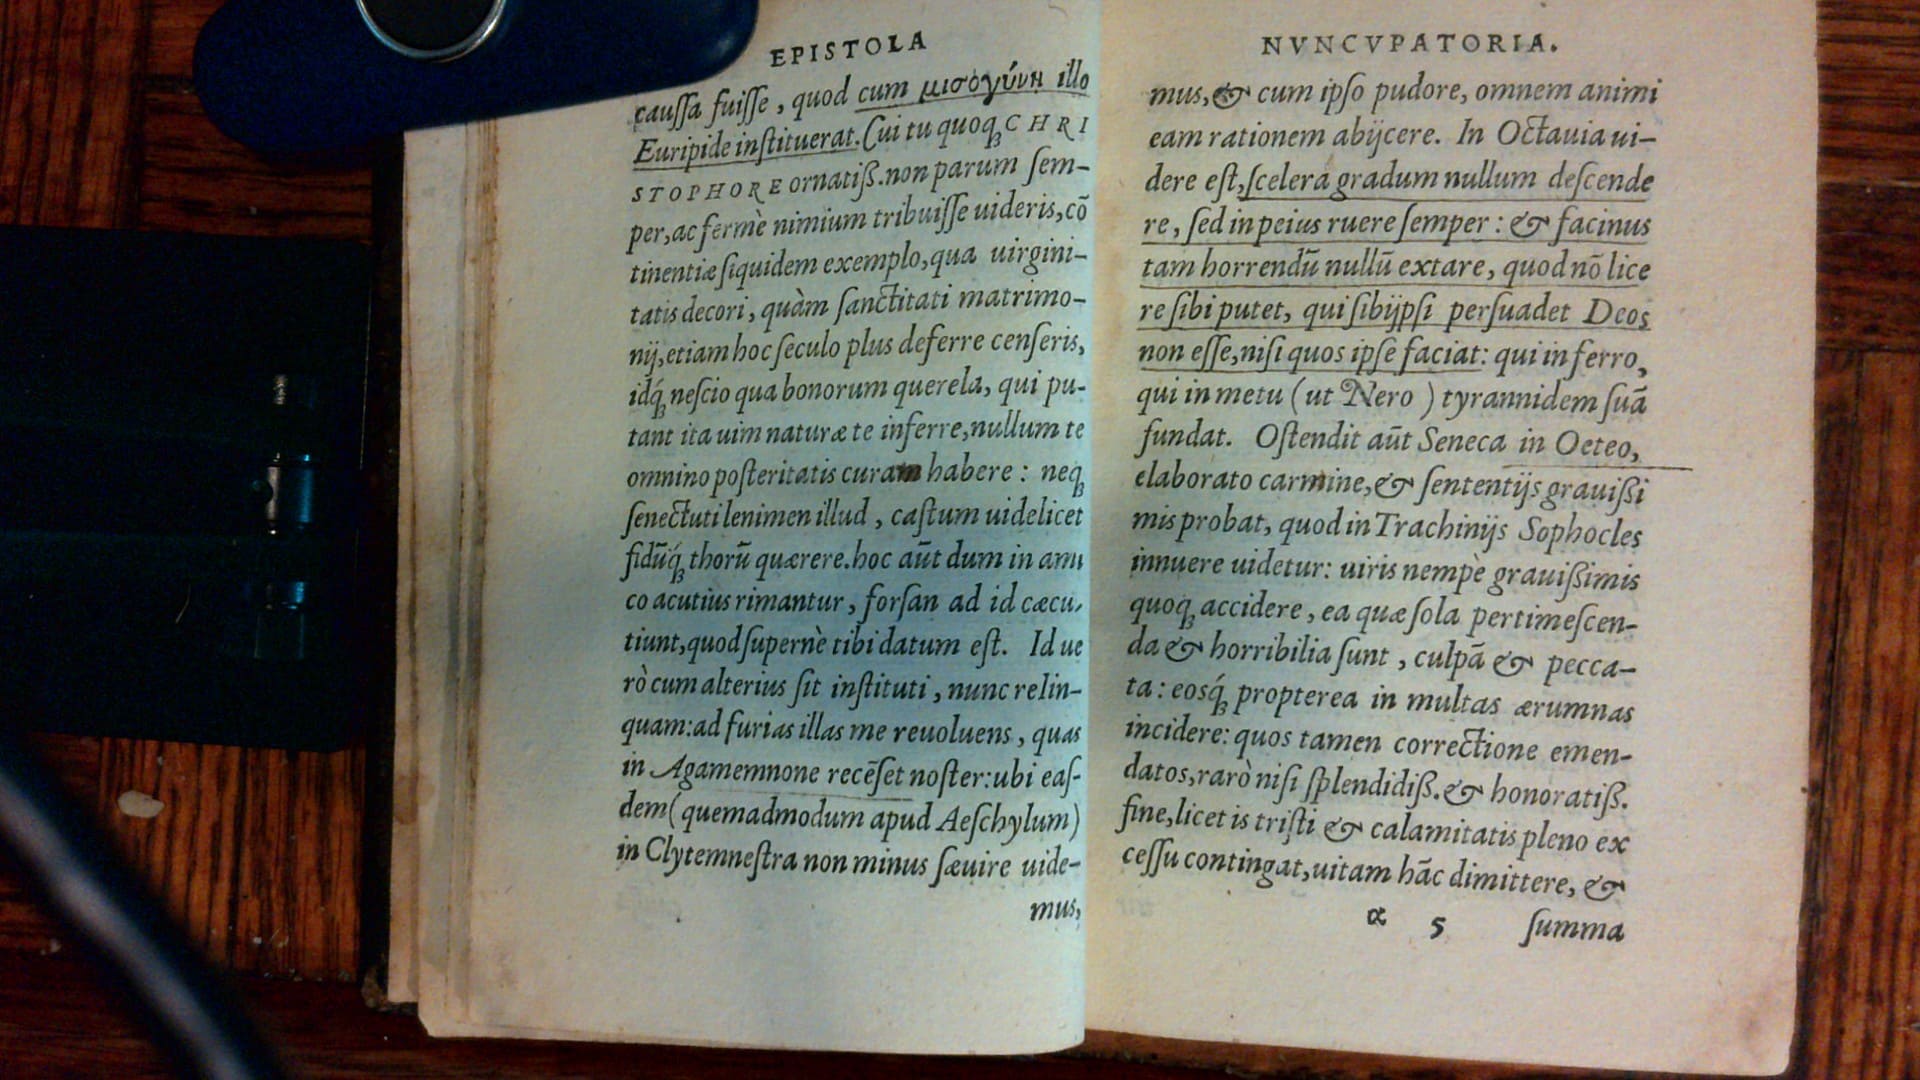 EPISTOLA
caussa fuisse, quod cum μισογύνη illo
Euripide instituerat. Cui tu quoqȝ CHRI
STOPHORE ornatiß. non parum sem-
per, ac fermè nimium tribuisse uideris, cō
tinentiæ siquidem exemplo, qua uirgini-
tatis decori, quàm sanctitati matrimo-
nij, etiam hoc seculo plus deferre censeris,
idq́ȝ nescio qua bonorum querela, qui pu-
tant ita uim naturæ te inferre, nullum te
omnino posteritatis curam habere: neqȝ
senectuti lenimen illud, castum uidelicet
fidūq́ȝ thorū quærere. hoc aūt dum in ami
co acutius rimantur, forsan ad id cæcu-
tiunt, quod supernè tibi datum est. Id ue
rò cum alterius sit instituti, nunc relin-
quam: ad furias illas me reuoluens, quas
in Agamemnone recēset noster: ubi eas-
dem (quemadmodum apud Aeschylum)
in Clytemnestra non minus sæuire uide-
mus,
NVNCVPATORIA.
mus, & cum ipso pudore, omnem animi
eam rationem abijcere. In Octauia ui-
dere est, scelera gradum nullum descende
re, sed in peius ruere semper: & facinus
tam horrendū nullū extare, quod nō lice
re sibi putet, qui sibijpsi persuadet Deos
non esse, nisi quos ipse faciat: qui in ferro,
qui in metu (ut Nero) tyrannidem suā
fundat. Ostendit aūt Seneca in Oeteo,
elaborato carmine, & sententijs grauißi
mis probat, quod in Trachinijs Sophocles
innuere uidetur: uiris nempè grauißimis
quoqȝ accidere, ea quæ sola pertimescen-
da & horribilia sunt, culpā & pecca-
ta: eosq́ȝ propterea in multas ærumnas
incidere: quos tamen correctione emen-
datos, rarò nisi splendidiß. & honoratiß.
fine, licet is tristi & calamitatis pleno ex
cessu contingat, uitam hāc dimittere, &
α 5 summa